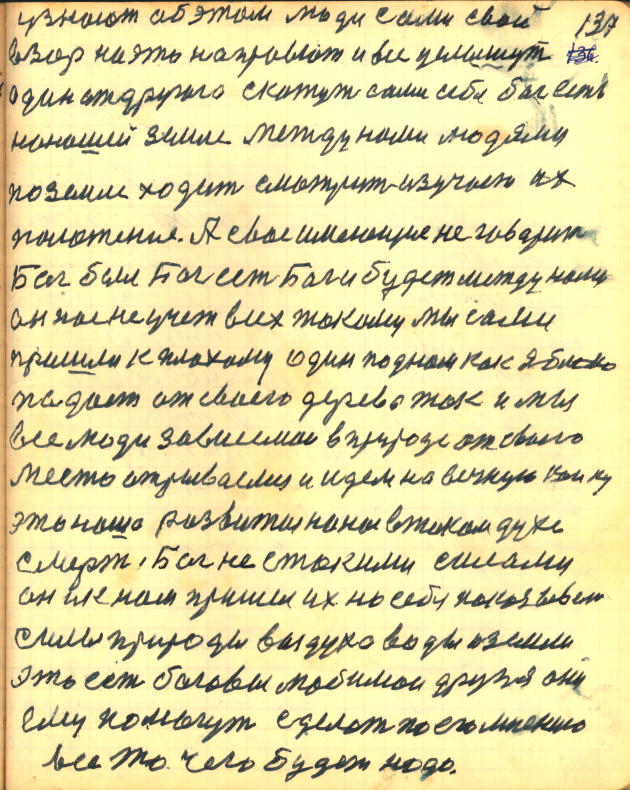 узнают об этом люди сами свой 137
взор на это направют и все услышут 136.
один от другого скажут сами себе бог есть
на нашей земле между нами людями
по земле ходит смотрит изучает их
положение. А свое имеющие не говарит
Бог был Бог есть Бог и будет между нами
он нас не учет всех такому мы сами
пришли к плохому один по дном как яблоко
падает от своего дерева так и мы
все люди зависемаи в природе от своего
место отрываемся и идем на вечную
это наша развития на нас в таком духе
смерт. Бог не с такими силами
он к нам пришел их на себя показывает
силы природы воздуха воды и земли
это ест боговы любимаи друзья они
ему помогут сделат по его мнению
все то чего будет надо.